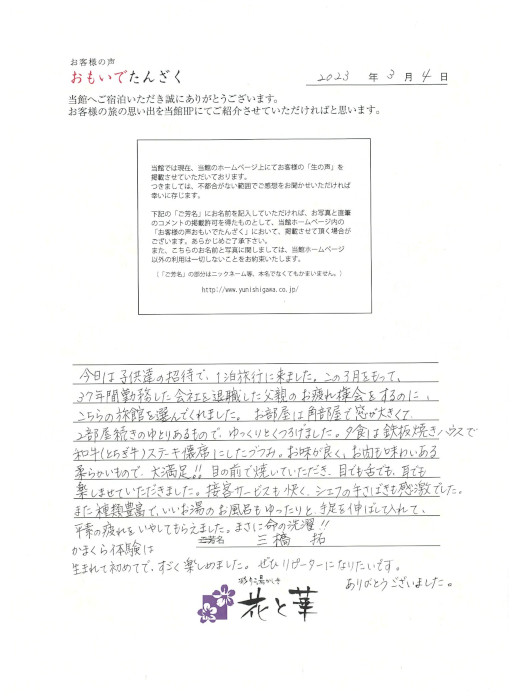 お客様の声
おもいでたんざく
2023 年 3 月 4 日
当館へご宿泊いただき誠にありがとうございます。
お客様の旅の思い出を当館HPにてご紹介させていただければと思います。
当館では現在、当館のホームページ上にてお客様の「生の声」を
掲載させていただいております。
つきましては、不都合がない範囲でご感想をお聞かせいただければ
幸いに存じます。
下記の「ご芳名」にお名前を記入していただければ、お写真と直筆
のコメントの掲載許可を得たものとして、当館ホームページ内の
「お客様の声おもいでたんざく」において、掲載させて頂く場合が
ございます。あらかじめご了承下さい。
また、こちらのお名前と写真に関しましては、当館ホームページ
以外の利用は一切しないことをお約束いたします。
(「ご芳名」の部分はニックネーム等、本名でなくてもかまいません。)
http://www.yunishigawa.co.jp/
今日は子供達の招待で、1泊旅行に来ました。この3月をもって、
37年間勤務した会社を退職した父親のお疲れ様会をするのに、
こちらの旅館を選んでくれました。 お部屋は角部屋で窓が大きくて、
2部屋続きのゆとりあるもので、ゆっくりとくつろげました。夕食は鉄板焼きハウスで
和牛(とちぎ牛)ステキ懐席にしたづつみ。お味が良く、お肉も味わいある
柔らかいもので、大満足!! 目の前で焼いていただき、目でも舌でも、耳でも
楽しませていただきました。接客サービスも快く、シェフの手さばきも感激でした。
また種類豊富で、いいお湯のお風呂もゆったりと、手足を伸ばして入れて、
平素の疲れをいやしてもらえました。まさに命の洗濯!!
ご芳名 三橋 拓
かまくら体験は
生まれて初めてで、すごく楽しめました。ぜひリピーターになりたいです。
ありがとうございました。
花と華